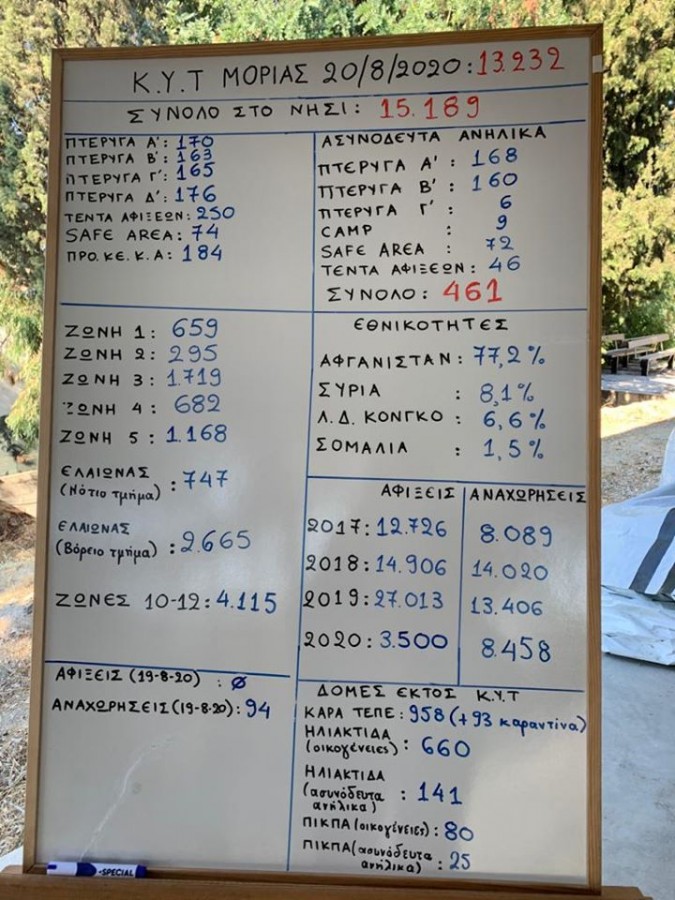 Κ.Υ.Τ ΜΟΡΙΑΣ 20/8/2020: 13.232
ΣΥΝΟΛΟ ΣΤΟ ΝΗΣΙ: 15.189
ΠΤΕΡΥΓΑ Α': 170
ΠΤΕΡΥΓΑ Β': 163
ΠΤΕΡΥΓΑ Γ': 165
ΠΤΕΡΥΓΑ Δ': 176
ΤΕΝΤΑ ΑΦΙΞΕΩΝ: 250
SAFE AREA: 74
ΠΡΟ.ΚΕ.Κ.Α: 184
ΑΣΥΝΟΔΕΥΤΑ ΑΝΗΛΙΚΑ
ΠΤΕΡΥΓΑ Α': 168
ΠΤΕΡΥΓΑ Β': 160
ΠΤΕΡΥΓΑ Γ': 6
CAMP : 9
SAFE AREA : 72
ΤΕΝΤΑ ΑΦΙΞΕΩΝ: 46
ΣΥΝΟΛΟ: 461
ΖΩΝΗ 1: 659
ΖΩΝΗ 2: 295
ΖΩΝΗ 3: 1.719
ΖΩΝΗ 4: 682
ΖΩΝΗ 5: 1.168
ΕΛΑΙΩΝΑΣ
(Νότιο τμήμα) : 747
ΕΛΑΙΩΝΑΣ
(Βόρειο τμήμα) : 2.665
ΖΩΝΕΣ 10-12: 4.115
ΕΘΝΙΚΟΤΗΤΕΣ
ΑΦΓΑΝΙΣΤΑΝ: 77,2%
ΣΥΡΙΑ : 8,1%
Λ.Δ. ΚΟΝΓΚΟ: 6,6%
ΣΟΜΑΛΙΑ : 1,5%
ΑΦΙΞΕΙΣ ΑΝΑΧΩΡΗΣΕΙΣ
2017: 12.726 8.089
2018: 14.906 14.020
2019: 27.013 13.406
2020: 3.500 8.458
ΑΦΙΞΕΙΣ (19-8-20) : Ø
ΑΝΑΧΩΡΗΣΕΙΣ (19-8-20): 94
ΔΟΜΕΣ ΕΚΤΟΣ Κ.Υ.Τ
ΚΑΡΑ ΤΕΠΕ: 958 (+93 καραντίνα)
ΗΛΙΑΚΤΙΔΑ
(οικογένειες) : 660
ΗΛΙΑΚΤΙΔΑ
(ασυνόδευτα
ανήλικα) : 141
ΠΙΚΠΑ (οικογένειες): 80
ΠΙΚΠΑ (ασυνόδευτα
ανήλικα) : 25
SPECIAL